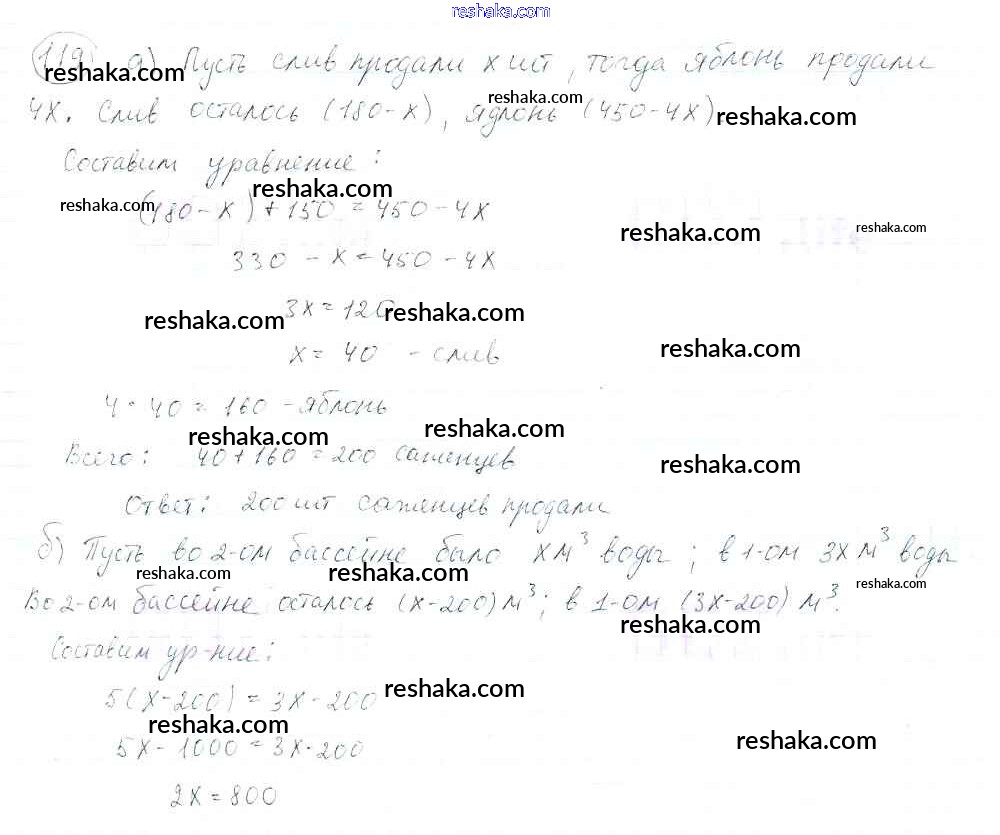 reshaka.com
119 а) Пусть слив продали х шт, тогда яблонь продали
reshaka.com
reshaka.com
4х. Слив осталось (180-х), яблонь (450-4х) reshaka.com
Составим уравнение:
reshaka.com
reshaka.com
(180-х)+150=450-4х
reshaka.com
reshaka.com
330-х=450-4х
3х=120
reshaka.com
reshaka.com
х=40 - слив
reshaka.com
4·40=160 -яблонь
reshaka.com
reshaka.com
Всего: 40+160=200 саженцев
reshaka.com
Ответ: 200 шт саженцев продали
б) Пусть во 2-ом бассейне было х м³ воды; в 1-ом 3х м³ воды
reshaka.com
reshaka.com
reshaka.com
Во 2-ом бассейне осталось (х-200) м³; в 1-ом (3х-200) м³.
reshaka.com
Составим ур-ние:
5(х-200)=3х-200
reshaka.com
reshaka.com
5х-1000=3х-200
reshaka.com
2х=800